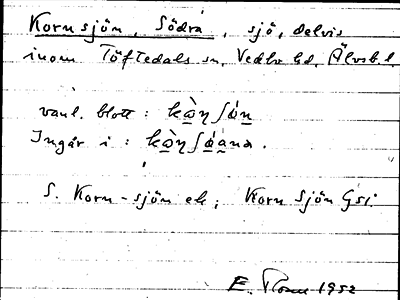 Kornsjön, Södra, sjö, delvis
inom Töftedals sn, Vedbo hd, Älvsb. l.
vanl. blott: kòŋʃǿn
Ingår i: kòŋʃǿana.
S. Korn-sjön ek; Korn Sjön Gsi.
E. 1952